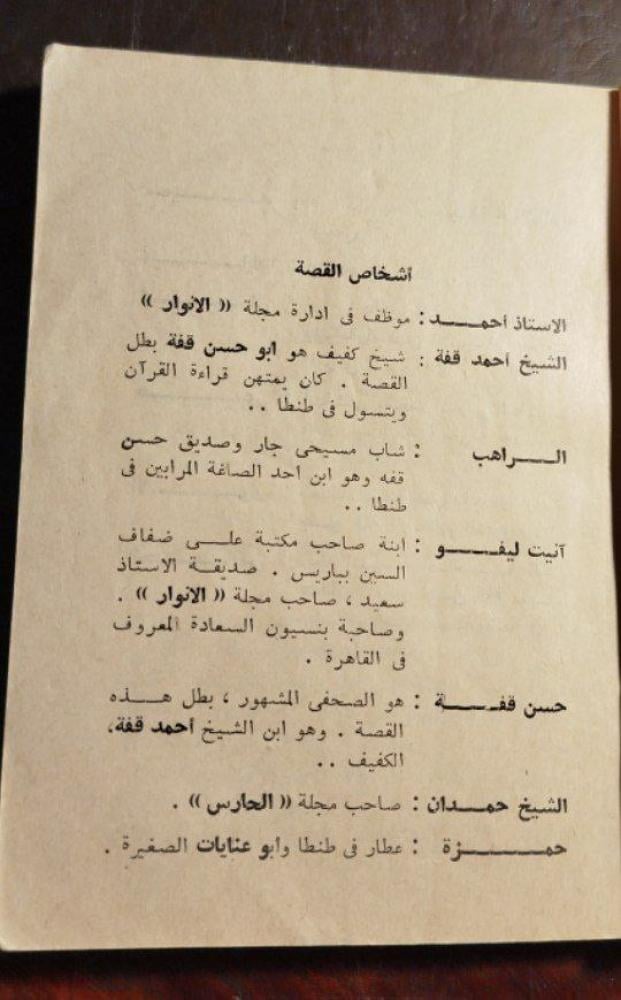 أشخاص القصة
الاستاذ أحمـــد : موظف فى ادارة مجلة « الانوار »
الشيخ أحمد قفة : شيخ كفيف هو ابو حسن قفة بطل
القصة . كان يمتهن قراءة القرآن
ويتسول فى طنطا ..
الـــراهب : شاب مسيحى جار وصديق حسن
قفه وهو ابن احد الصاغة المرابين فى
طنطا ..
آنيت ليفـــو : ابنة صاحب مكتبة علــى ضفاف
السين بباريس . صديقـة الاستاذ
سعيد ، صاحب مجلة « الانوار » .
وصاحبة بنسيون السعادة المعروف
فى القاهرة .
حسن قفـــة : هو الصحفى المشهور ، بطل هـــذه
القصة . وهو ابن الشيخ أحمد قفة،
الكفيف ..
الشيخ حمــدان : صاحب مجلة « الحارس » .
حمـــــزة : عطار فى طنطا وابو عنايات الصغيرة .